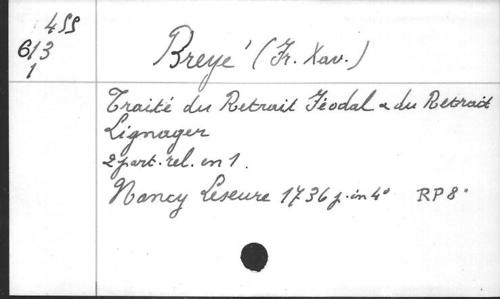 455
613
1
Breyé (Fr. Xav.)
Traité du Retrait Féodal & du Retrait
Lignager
2 part. rel. en 1.
Nancy Leseure 1736 p. in 4° RP 8°